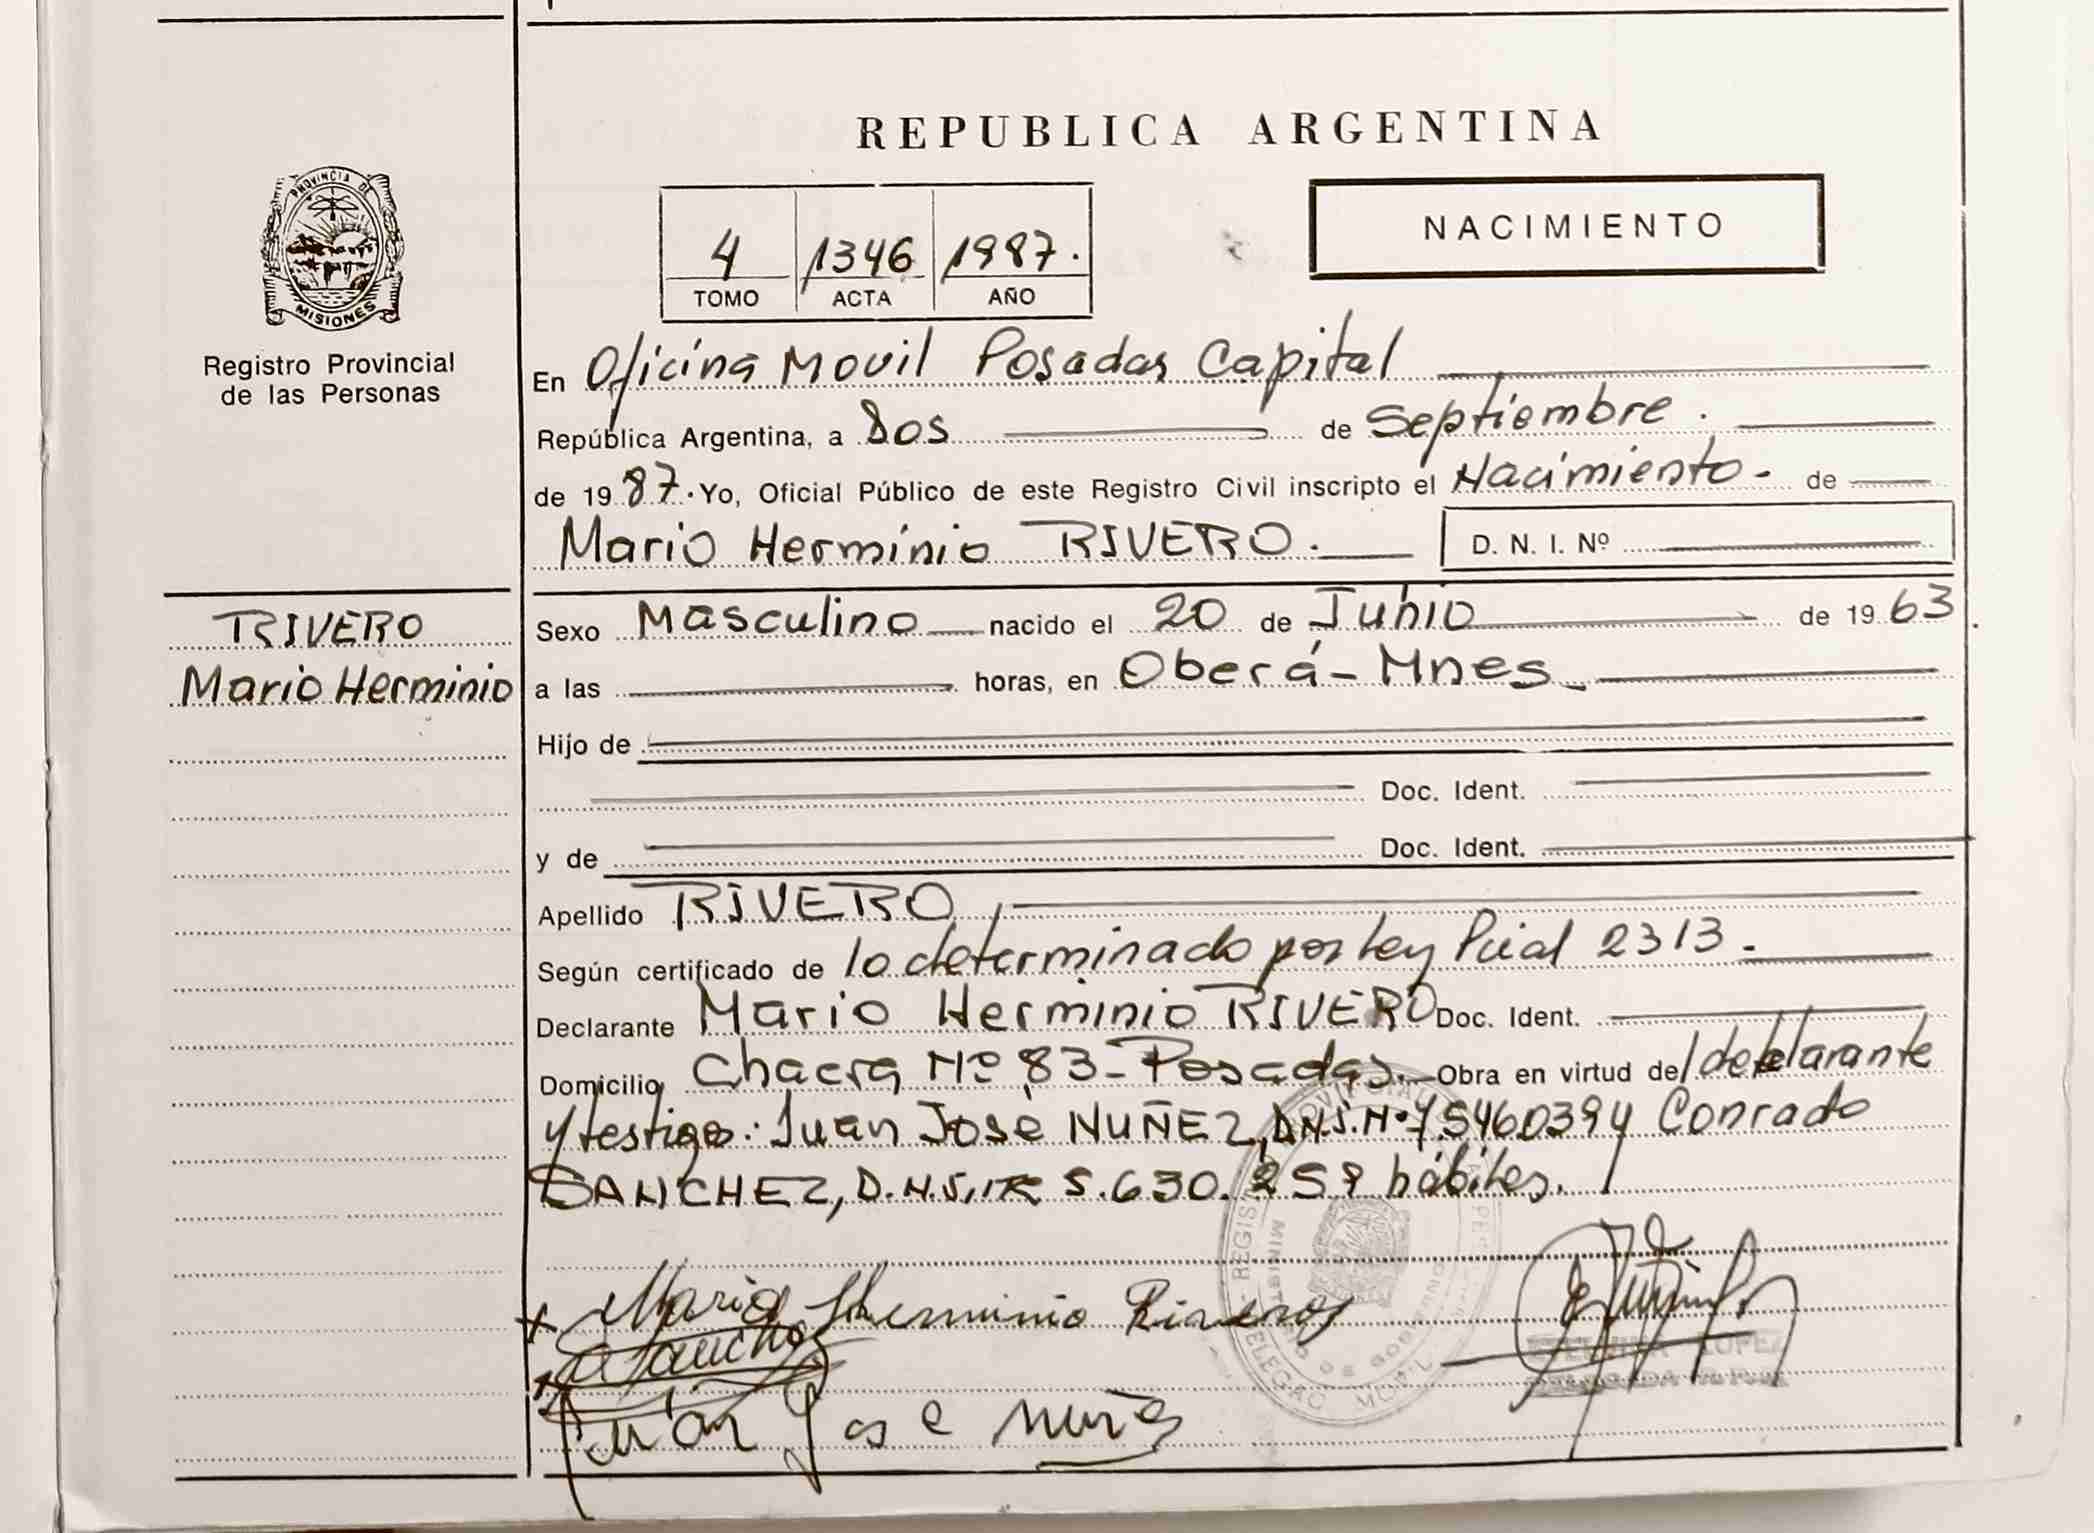 REPUBLICA ARGENTINA
PROVINCIA DE
MISIONES
Registro Provincial
de las Personas
NACIMIENTO
4 1346 1987.
TOMO ACTA AÑO
En Oficina Movil Posadas Capital
República Argentina, a Dos de Septiembre.
de 1987. Yo, Oficial Público de este Registro Civil inscripto el Nacimiento - de
Mario Herminio RIVERO. D. N. I. Nº
RIVERO
Mario Herminio
Sexo Masculino nacido el 20 de Junio de 1963.
a las horas, en Oberá - Mnes.
Hijo de
Doc. Ident.
y de Doc. Ident.
Apellido RIVERO
Según certificado de lo determinado por Ley Pcial 2313.
Declarante Mario Herminio RIVERO Doc. Ident.
Domicilio Chacra Nº 83 - Posadas. Obra en virtud del declarante
y testigos: Juan José NUÑEZ, D.N.I. Nº y Conrado
SANCHEZ, D.N.I. 5.630.259 hábiles.
Mario Herminio Rivero
Sancho
Juan Jose Nuñes